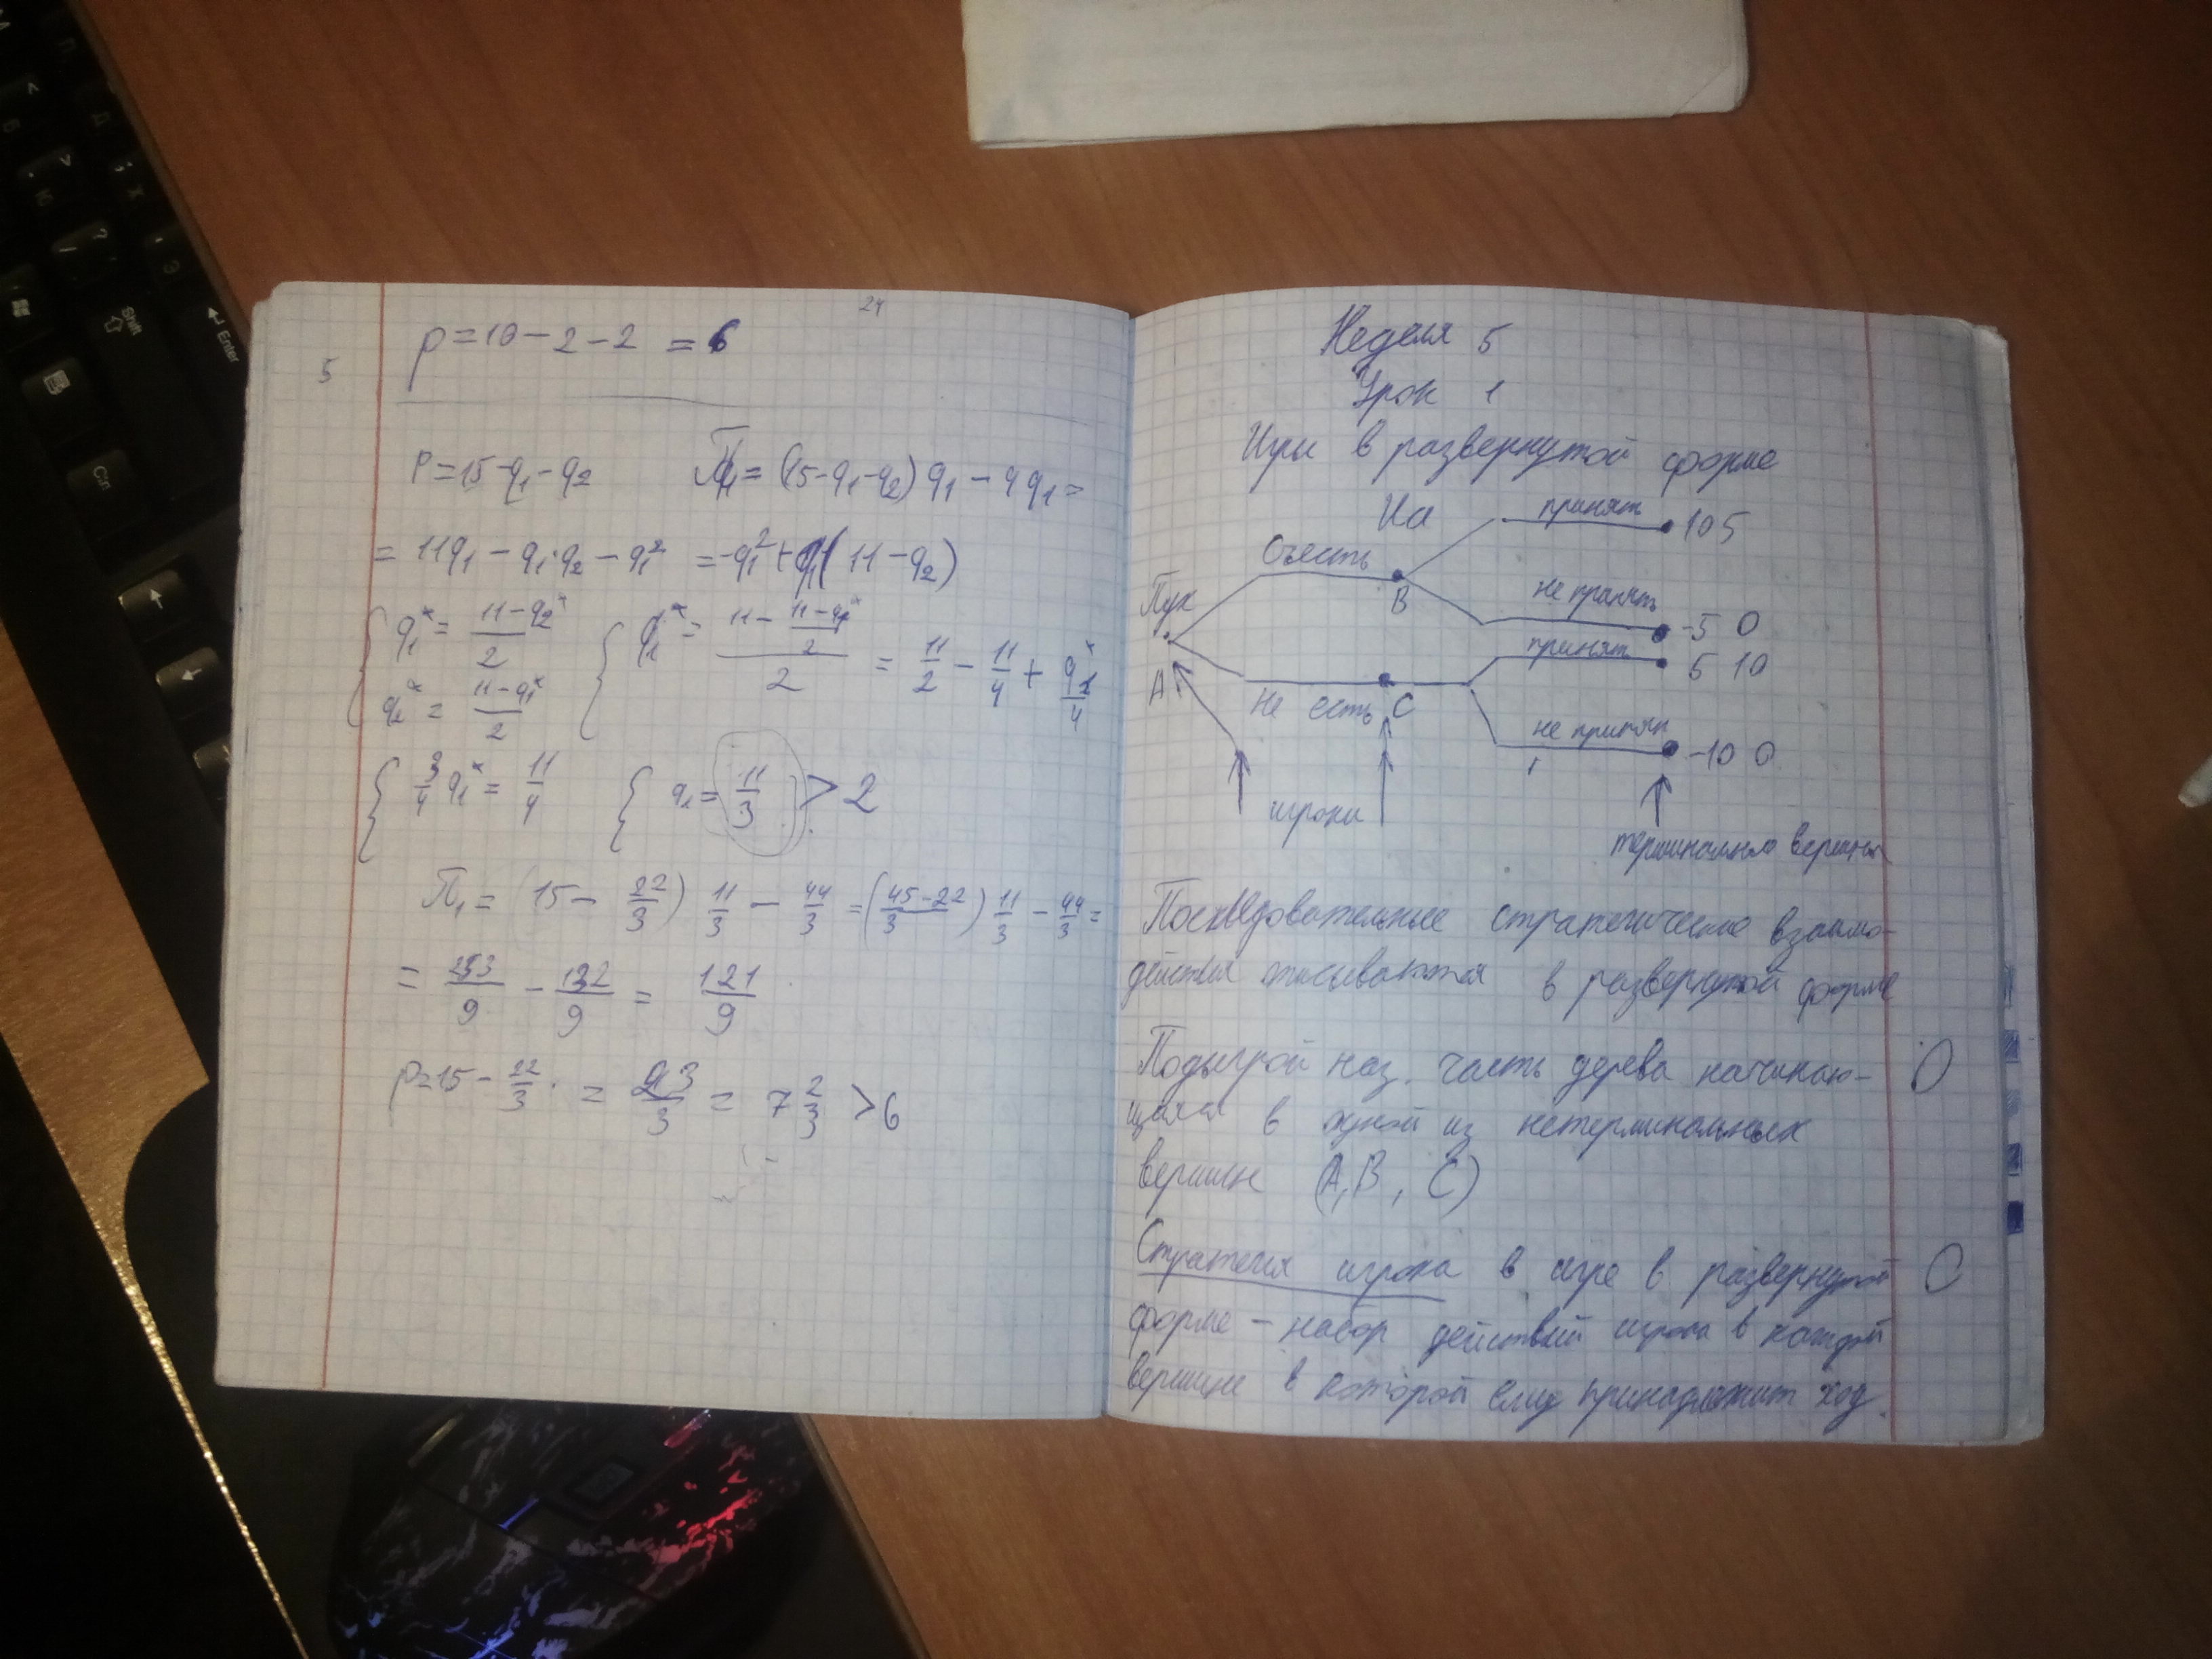 24
p = 10 - 2 - 2 = 6
5
P = 15 - q₁ - q₂ П₁ = (15 - q₁ - q₂) q₁ - 4 q₁ =
= 11q₁ - q₁·q₂ - q₁² = -q₁² + q₁(11 - q₂)
{ q₁* = (11 - q₂*)/2 { q₁* = (11 - (11 - q₁*)/2)/2 = 11/2 - 11/4 + q₁*/4
q₂* = (11 - q₁*)/2
{ 3/4 q₁* = 11/4 { q₁ = 11/3 > 2
П₁ = (15 - 22/3) 11/3 - 44/3 = ((45 - 22)/3) 11/3 - 44/3 =
= 253/9 - 132/9 = 121/9
p = 15 - 22/3 = 23/3 = 7 2/3 > 6
Неделя 5
Урок 1
Игры в развернутой форме
Иа принять 10 5
Съесть
B
не принять -5 0
Пух
принять 5 10
A
Не есть C
не принять -10 0
игроки
терминальные вершины
Последовательные стратегические взаимо-
действия описываются в развернутой форме
Подыгрой наз. часть дерева начинаю-
щаяся в одной из нетерминальных
вершин (A, B, C)
Стратегия игрока в игре в развернутой
форме - набор действий игрока в каждой
вершине в которой ему принадлежит ход.